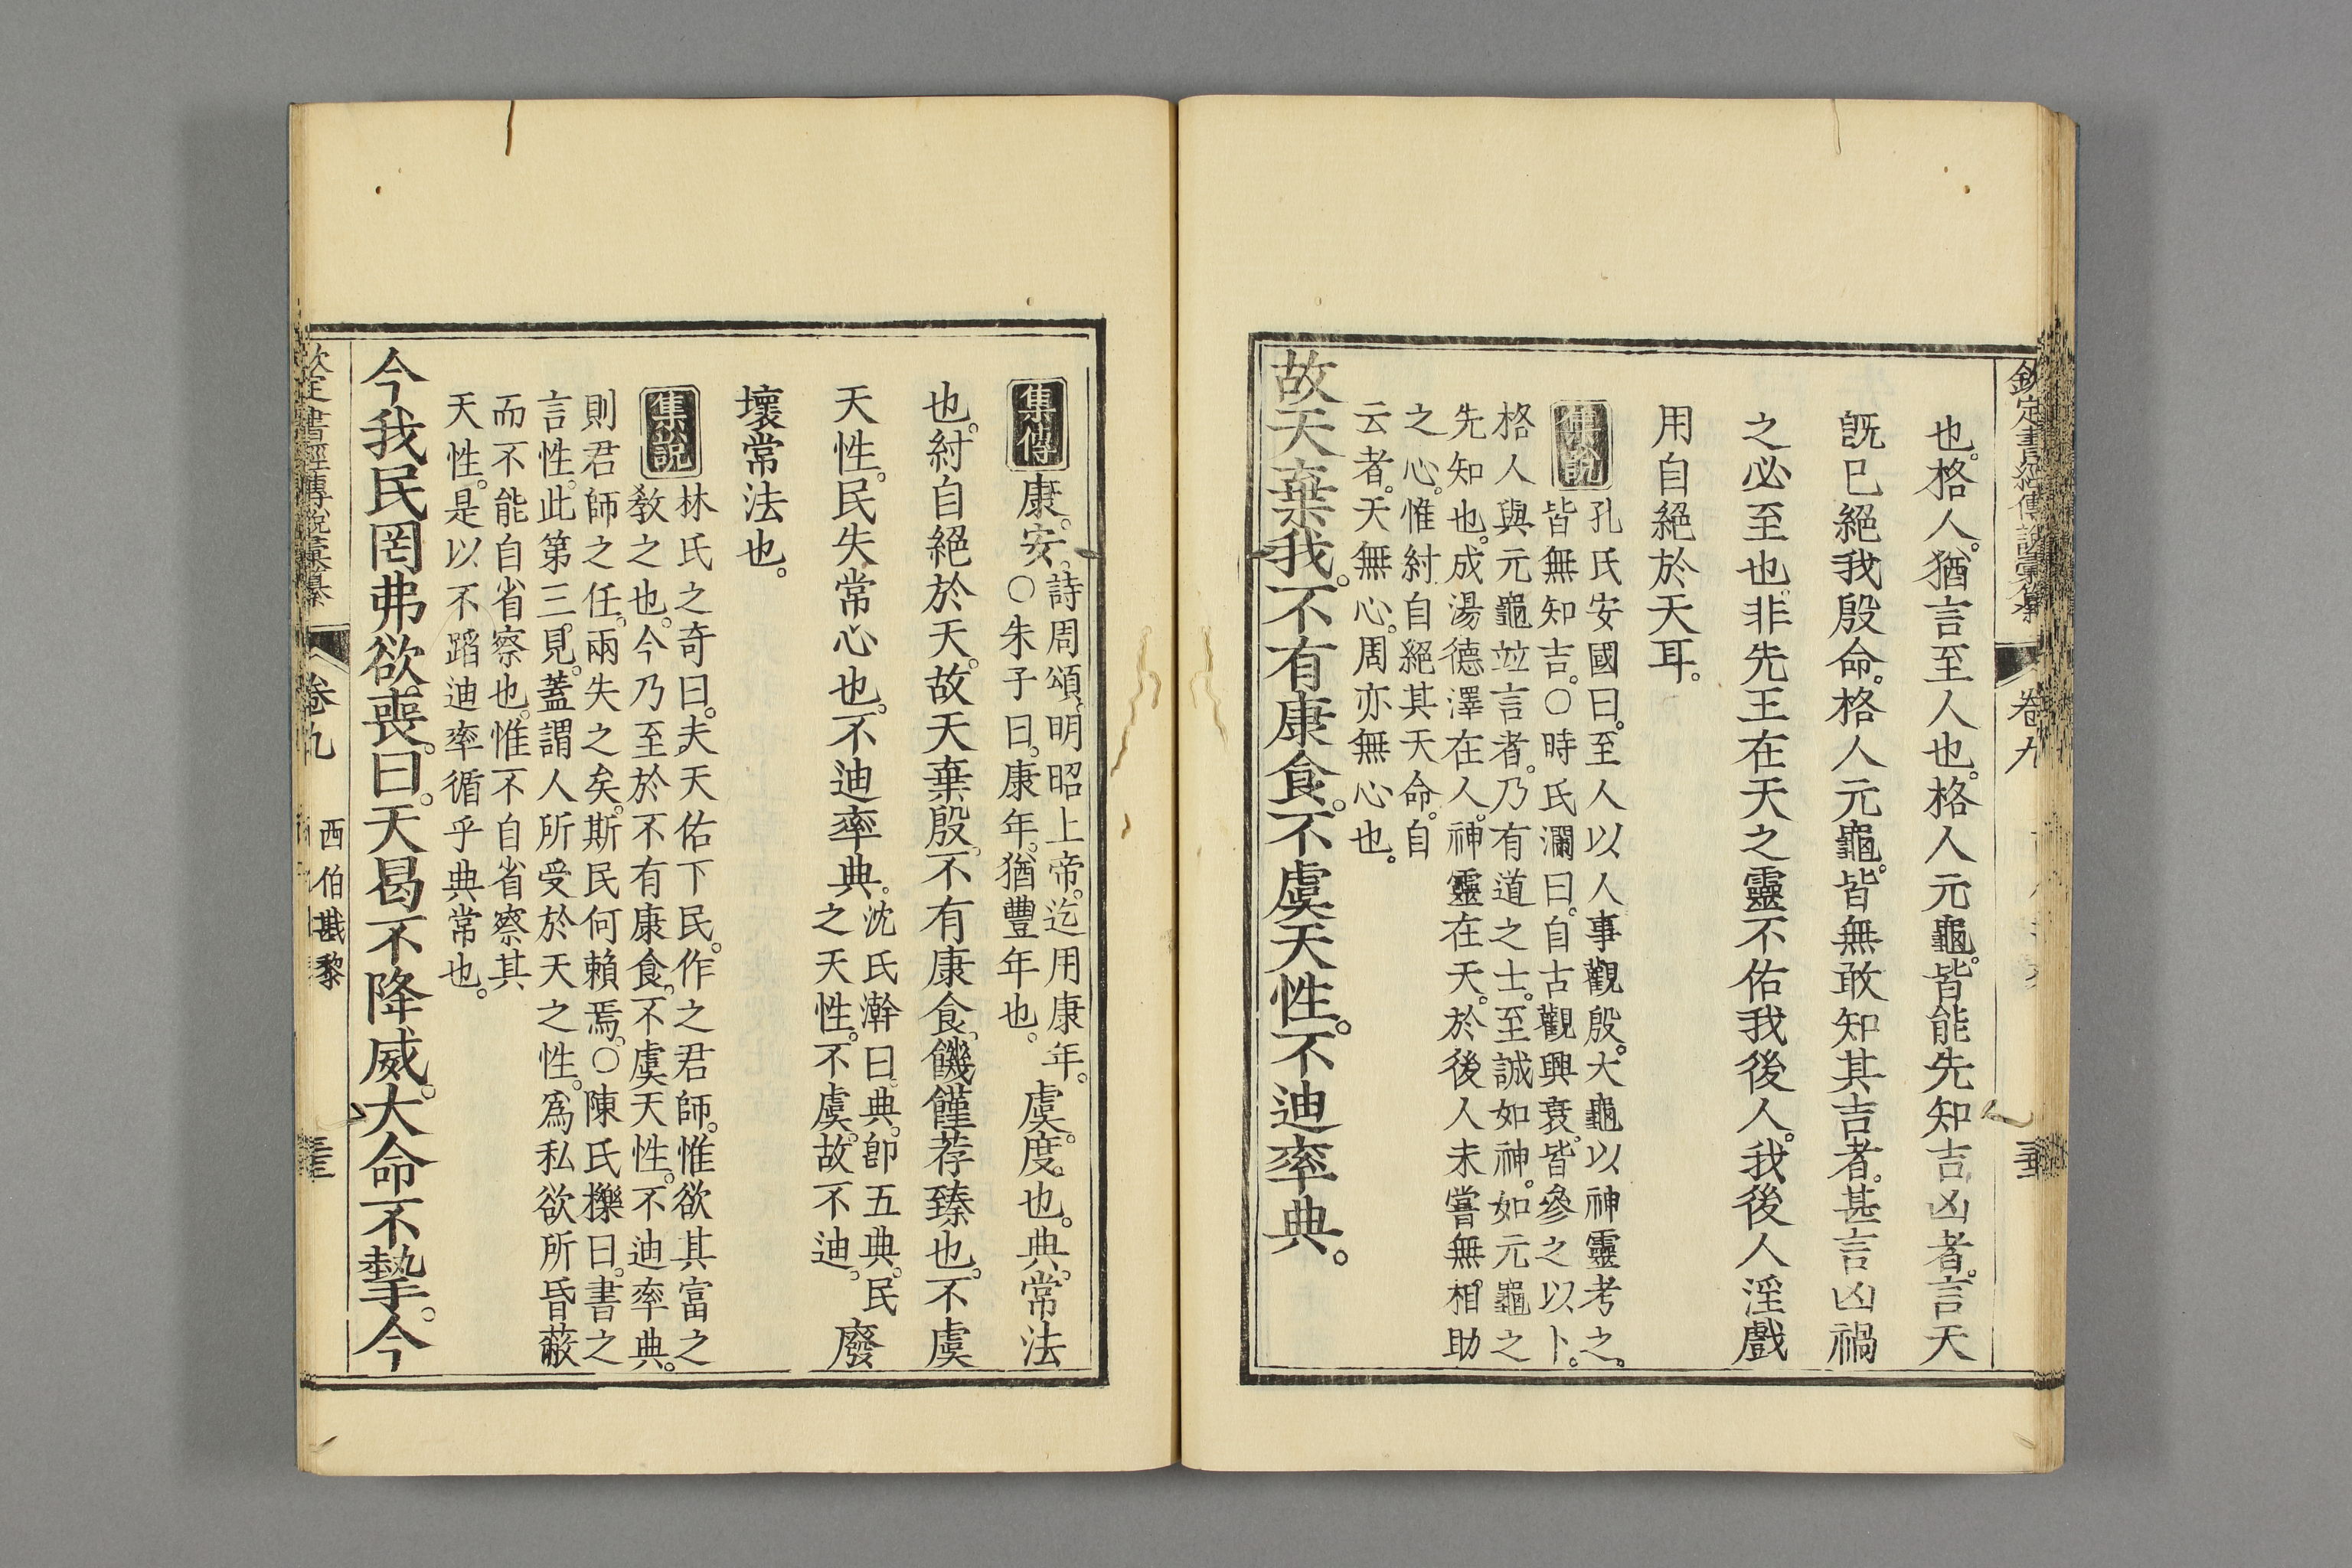 欽定書經傳說彙纂
卷九
也。格人。猶言至人也。格人元龜。皆能先知吉凶者。言天
旣已絕我殷命。格人元龜。皆無敢知其吉者。甚言凶禍
之必至也。非先王在天之靈不佑我後人。我後人淫戲
用自絕於天耳。
集說
孔氏安國曰。至人以人事觀殷。大龜以神靈考之。
皆無知吉。○時氏瀾曰。自古觀興衰。皆參之以卜。
格人與元龜竝言者。乃有道之士。至誠如神。如元龜之
先知也。成湯德澤在人。神靈在天。於後人未嘗無相助
之心。惟紂自絕其天命。自
云者。天無心。周亦無心也。
故天棄我。不有康食。不虞天性。不迪率典。
集傳
康。安。
詩周頌。明昭上帝。迄用康年。
○朱子曰。康年。猶豐年也。
虞。度也。典。常法
也。紂自絕於天。故天棄殷。不有康食。饑饉荐臻也。不虞
天性。民失常心也。不迪率典。
沈氏澣曰。典。卽五典。民
之天性。不虞。故不迪。
廢
壞常法也。
集說
林氏之奇曰。夫天佑下民。作之君師。惟欲其富之
敎之也。今乃至於不有康食。不虞天性。不迪率典。
則君師之任。兩失之矣。斯民何賴焉。○陳氏櫟曰。書之
言性。此第三見。蓋謂人所受於天之性。爲私欲所昏蔽
而不能自省察也。惟不自省察其
天性。是以不蹈迪率循乎典常也。
今我民罔弗欲喪。曰。天曷不降威。大命不摯。今
欽定書經傳說彙纂
卷九
西伯戡黎